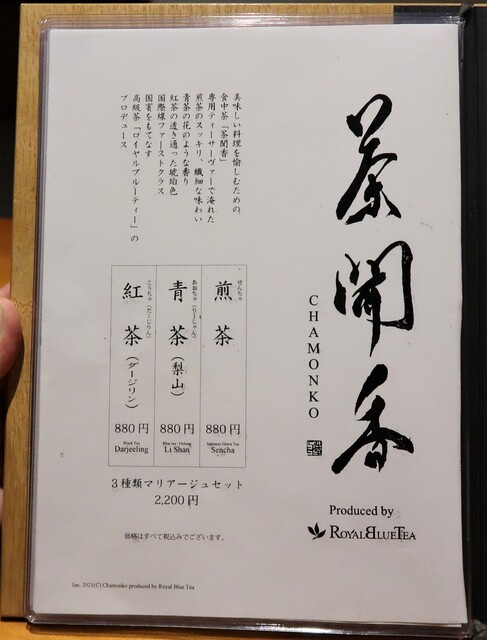 茶聞香
CHAMONKO
Produced by
ROYALBLUETEA
美味しい料理を愉しむための、
食中茶「茶聞香」
専用ティーサーヴァーで淹れた
煎茶のスッキリ、繊細な味わい
青茶の花のような香り
紅茶の透き通った琥珀色
国際線ファーストクラス
国賓をもてなす
高級茶「ロイヤルブルーティー」の
プロデュース
せんちゃ
煎茶
880円
Japanese Green Tea
Sencha
あおちゃ(りーしゃん)
青茶(梨山)
880円
Blue tea / Oolong
Li Shan
こうちゃ(だーじりん)
紅茶(ダージリン)
880円
Black Tea
Darjeeling
3種類マリアージュセット
2,200円
価格はすべて税込みでございます。
Jan, 2021(C) Chamonko produced by Royal Blue Tea